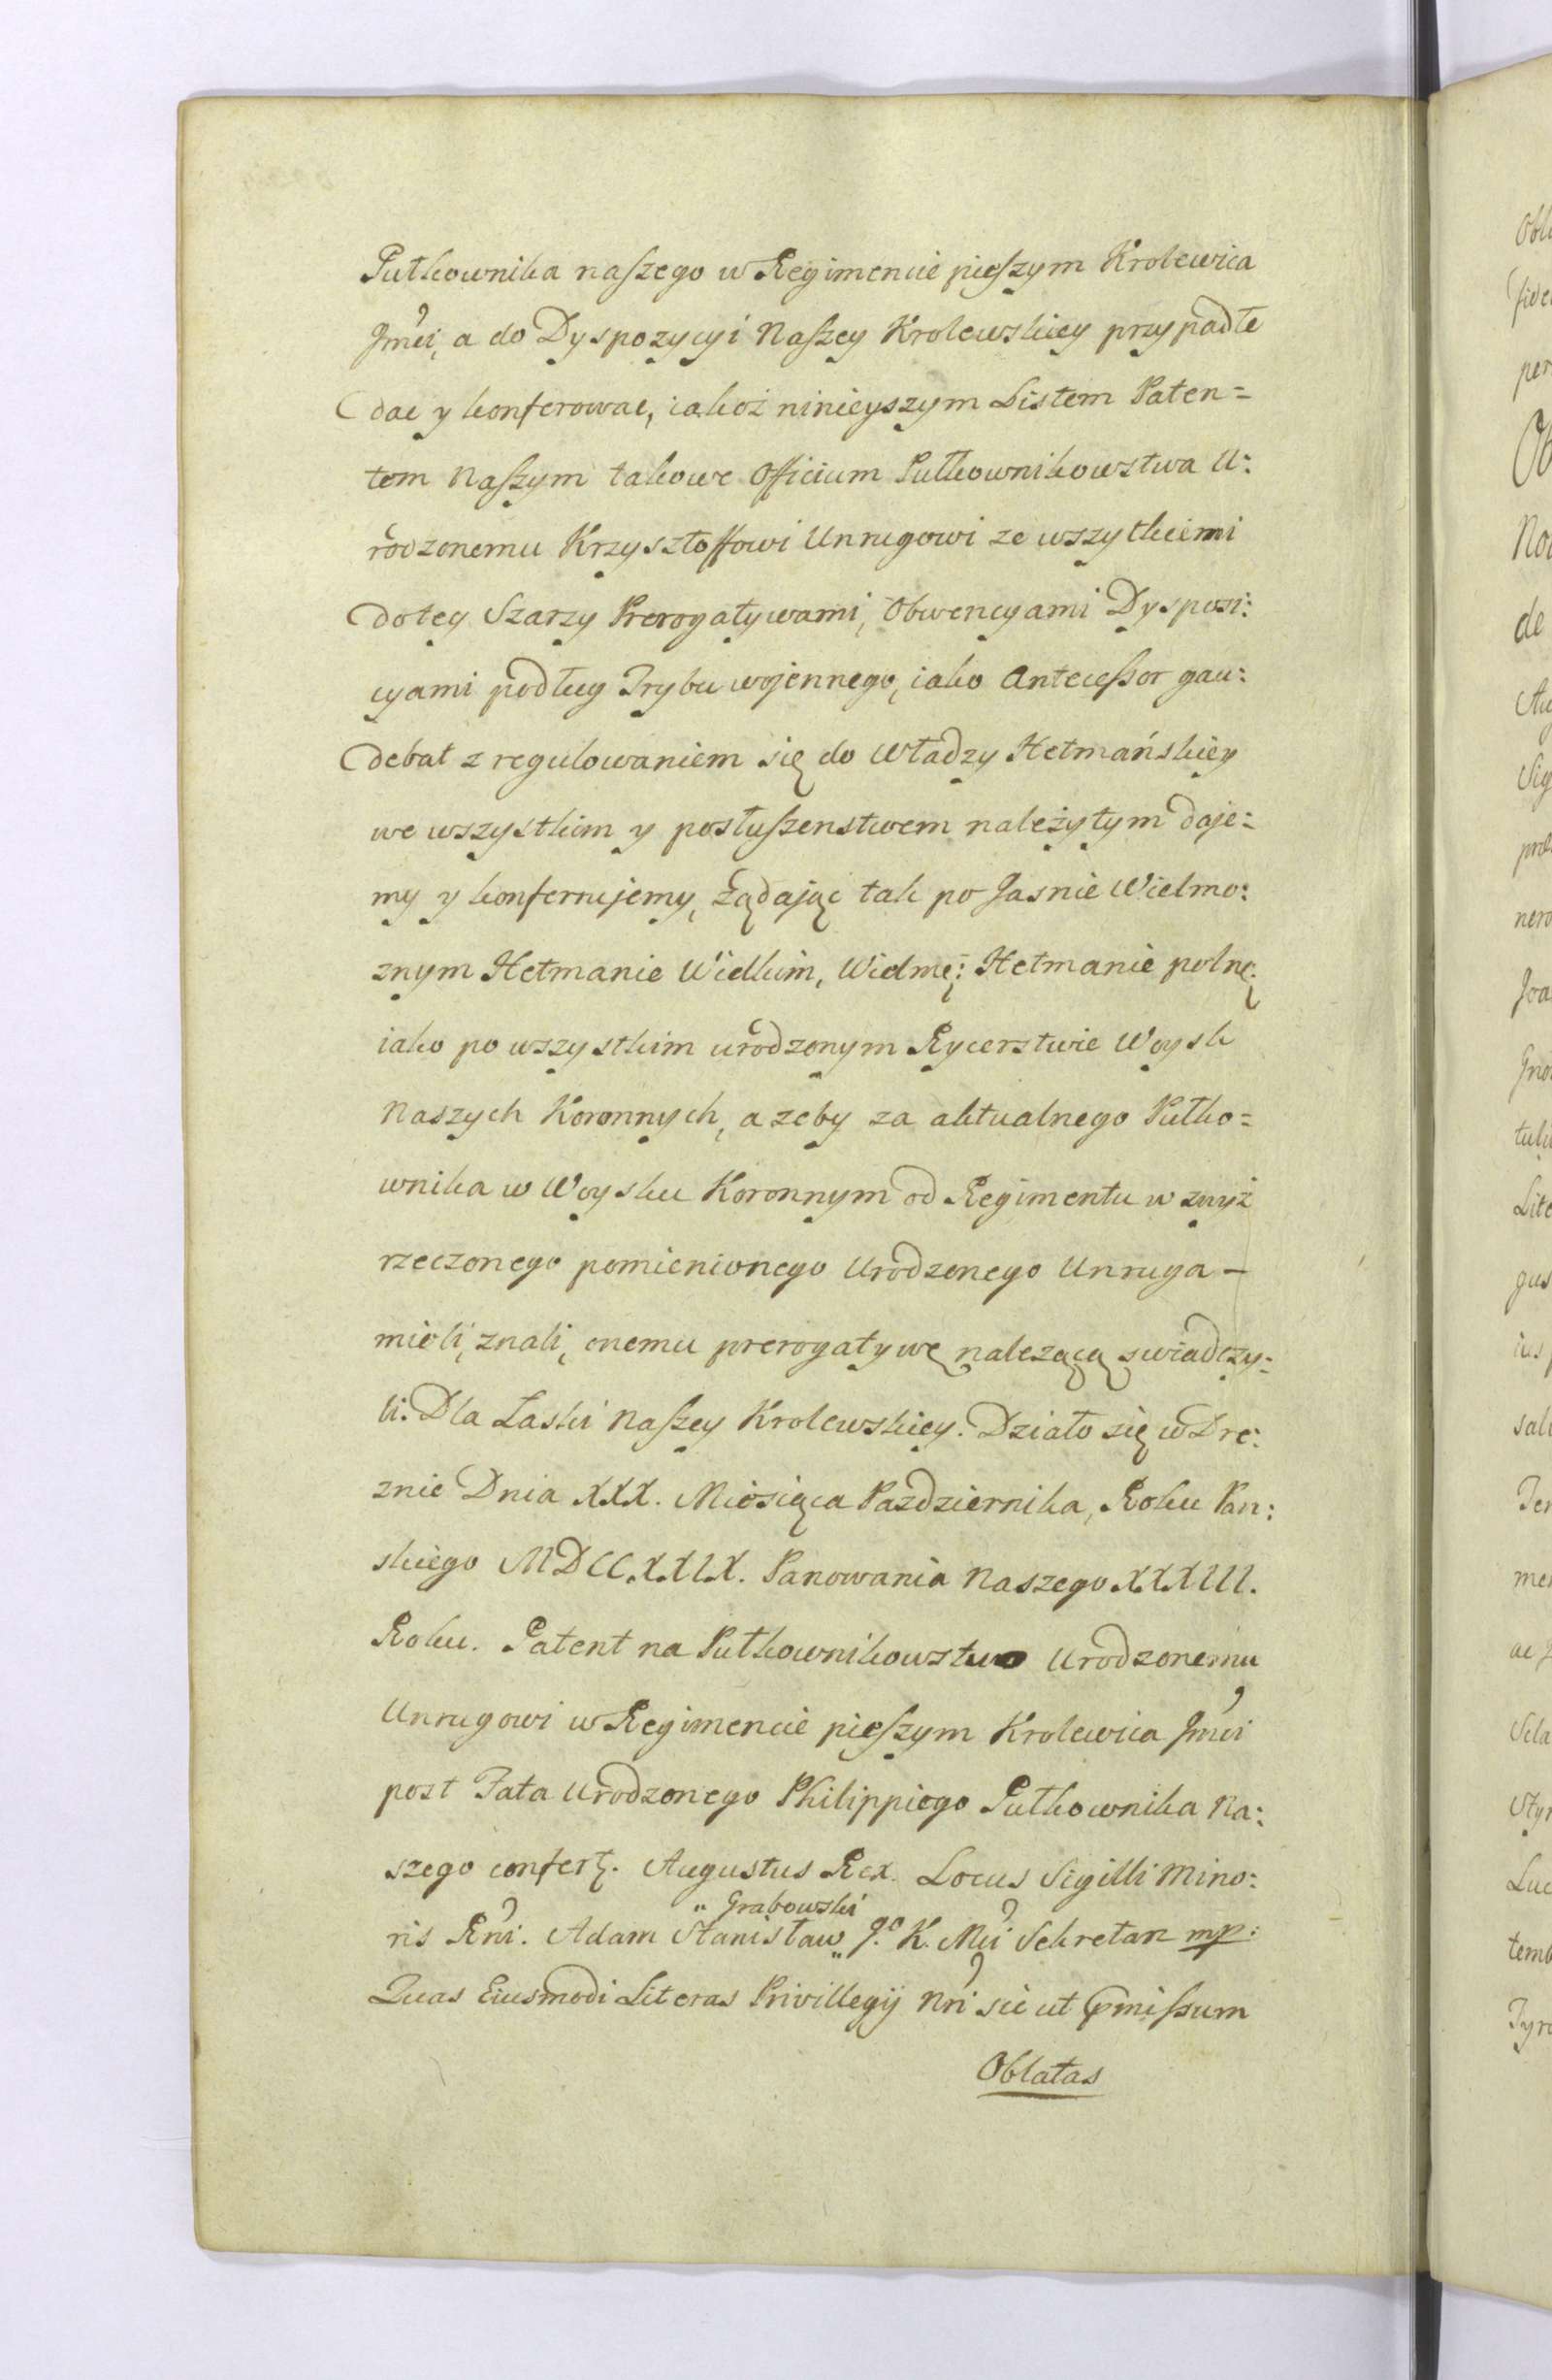 Pułkownika naszego w Regimencie pieszym Krolewica
Jmci, a do Dyspozycyi Naszey Krolewskiey przypadłe
dac y konferowac, iakoż ninieyszym Listem Paten=
tem Naszym takowe Officium Pułkownikowstwa U:
rodzonemu Krzysztoffowi Unrugowi ze wszytkiemi
do tey Szarzy Prerogatywami, Obwencyami Dysposi:
cyami podług Trybu wojennego, iako Antecessor gau:
debat z regulowaniem się do Władzy Hetmańskiey
we wszystkim y posłuszenstwem należytym daje=
my y konferujemy, żądając tak po Jasnie Wielmo:
znym Hetmanie Wielkim, Wielmę: Hetmanie polnę:
iako po wszystkim urodzonym Rycerstwie Woysk
Naszych Koronnych, a zeby za aktualnego Pułko=
wnika w Woysku Koronnym od Regimentu w zwyż
rzeczonego pomienionego Urodzonego Unruga —
mieli, znali, onemu prerogatywę nalezącą swiadczy=
li. Dla Laski Naszey Krolewskiey. Działo się w Dre:
znie Dnia XXX. Miesiąca Pazdziernika, Roku Pan:
skiego MDCCXXIX. Panowania Naszego XXXIII.
Roku. Patent na Pułkownikowstwo Urodzonemu
Unrugowi w Regimencie pieszym Krolewica Jmci
post Fata Urodzonego Philippiego Pułkownika Na:
szego confert. Augustus Rex. Locus Sigilli Mino:
„ Grabowski
ris Rni. Adam Stanisław „ J.º K. Mci Sekretarz mp:
Quas Eiusmodi Literas Privillegij Nri sic ut pmissum
Oblatas